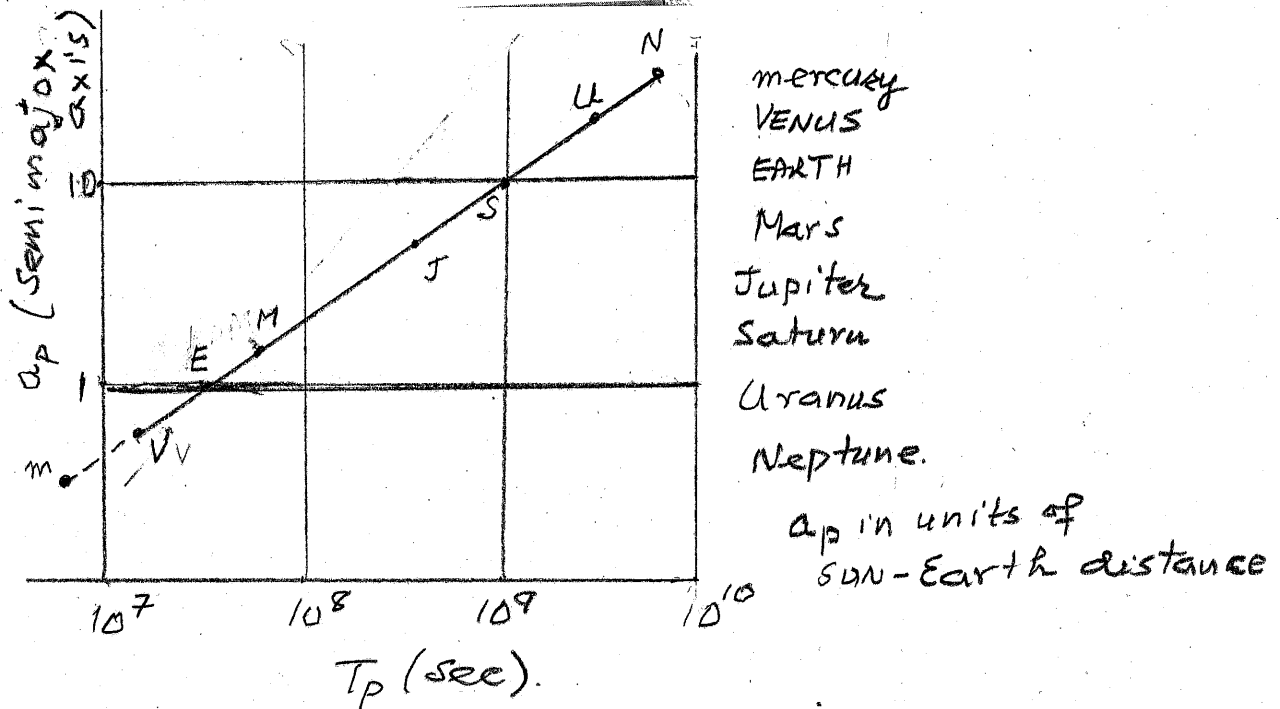 a_p (Semi major axis)
10
1
N
U
S
J
M
E
V
V
m
10^7
10^8
10^9
10^10
T_p (sec).
mercury
VENUS
EARTH
Mars
Jupiter
Saturn
Uranus
Neptune.
a_p in units of
SUN-Earth distance